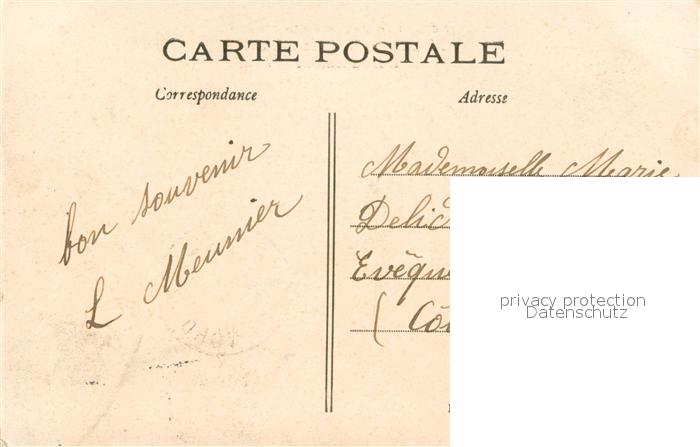 CARTE POSTALE
Correspondance
Adresse
bon souvenir
L Meunier
Mademoiselle Marie
Evêque
privacy protection
Datenschutz